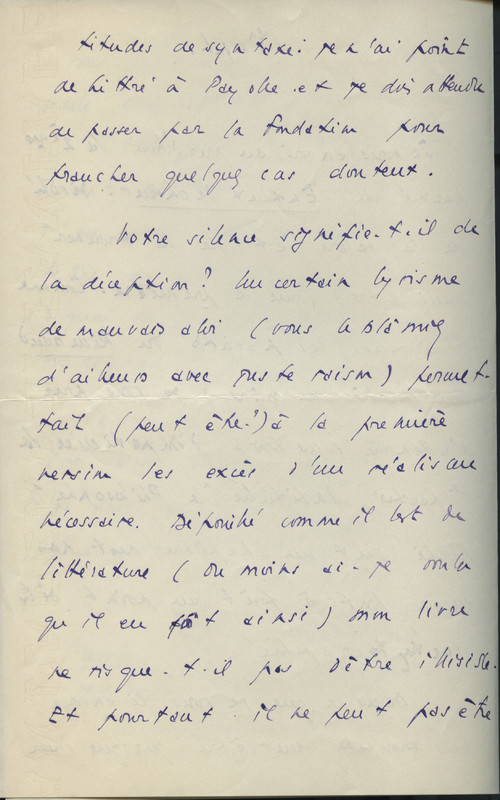 titudes de syntaxe: je n'ai point
de Littré à Payolle et je dois attendre
de passer par la Fondation pour
trancher quelques cas douteux.
Votre silence signifie-t-il de
la déception? Un certain lyrisme
de mauvais aloi (vous le blâmiez
d'ailleurs avec juste raison) permet-
tait (peut être?) à la première
version les excès d'un réalisme
nécessaire. Dépouillé comme il l'est de
littérature (du moins ai-je voulu
qu'il en fût ainsi) mon livre
ne risque-t-il pas d'être illisible.
Et pourtant il ne peut pas être